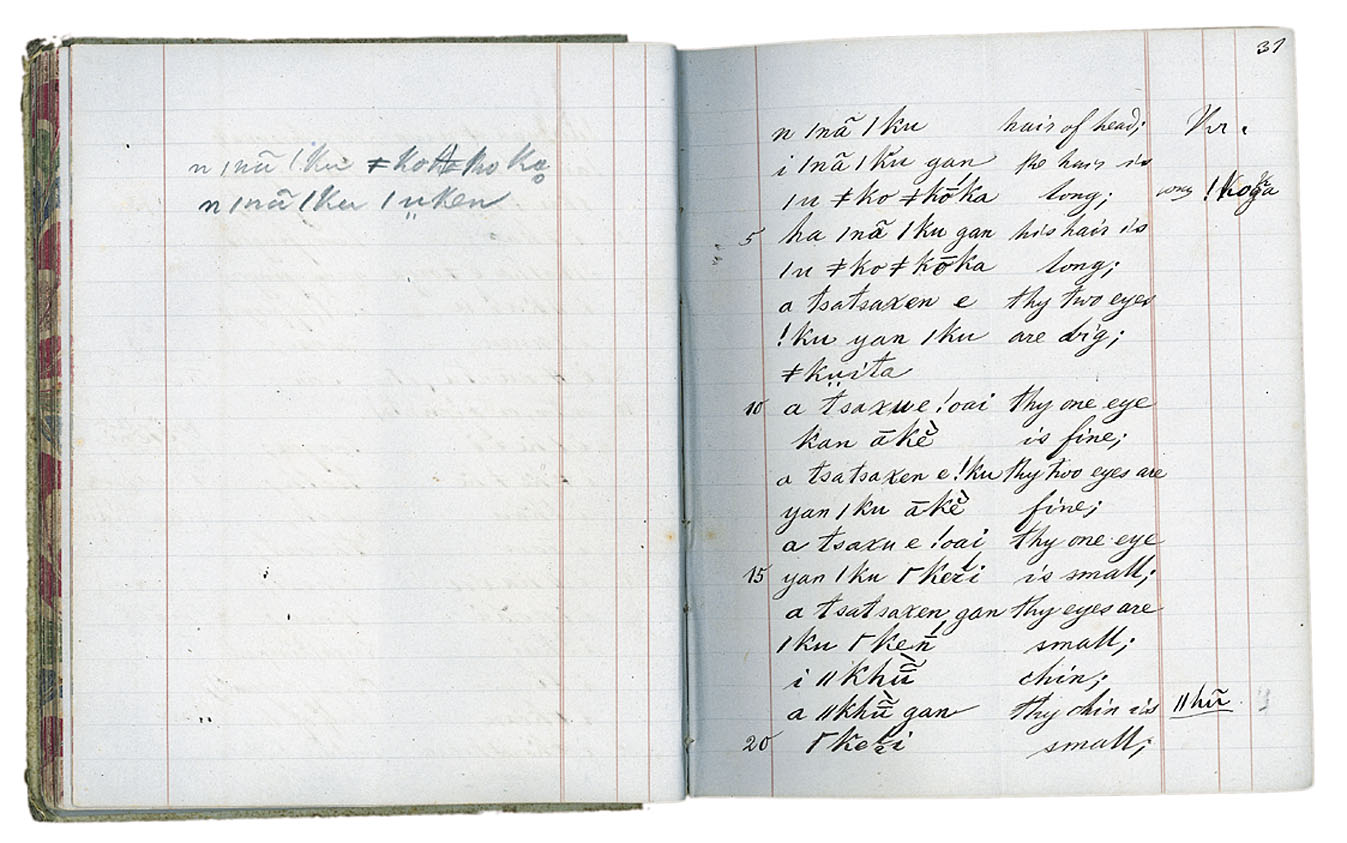 n |nã |ku |ṳken
37
n |nã |ku hair of head;
i |nã |k̆u gan the hair is
|u ǂko ǂkōka long;
5 ha |nã |ku gan his hair is
|u ǂko ǂkōka long;
a tsatsaxen e thy two eyes
!ku yan |ku are big;
ǂkṳita
10 a tsaxu e !oai thy one eye
kan ākĕ̀ is fine;
a tsatsaxen e !ku thy two eyes are
yan |ku ākĕ̀ fine;
a tsaxu e !oai thy one eye
15 yan |ku is small;
a tsatsaxen gan thy eyes are
|ku small;
i ||khũ̄̀ chin;
a ||khũ̄̀ gan thy chin is ||hũ
20 small;